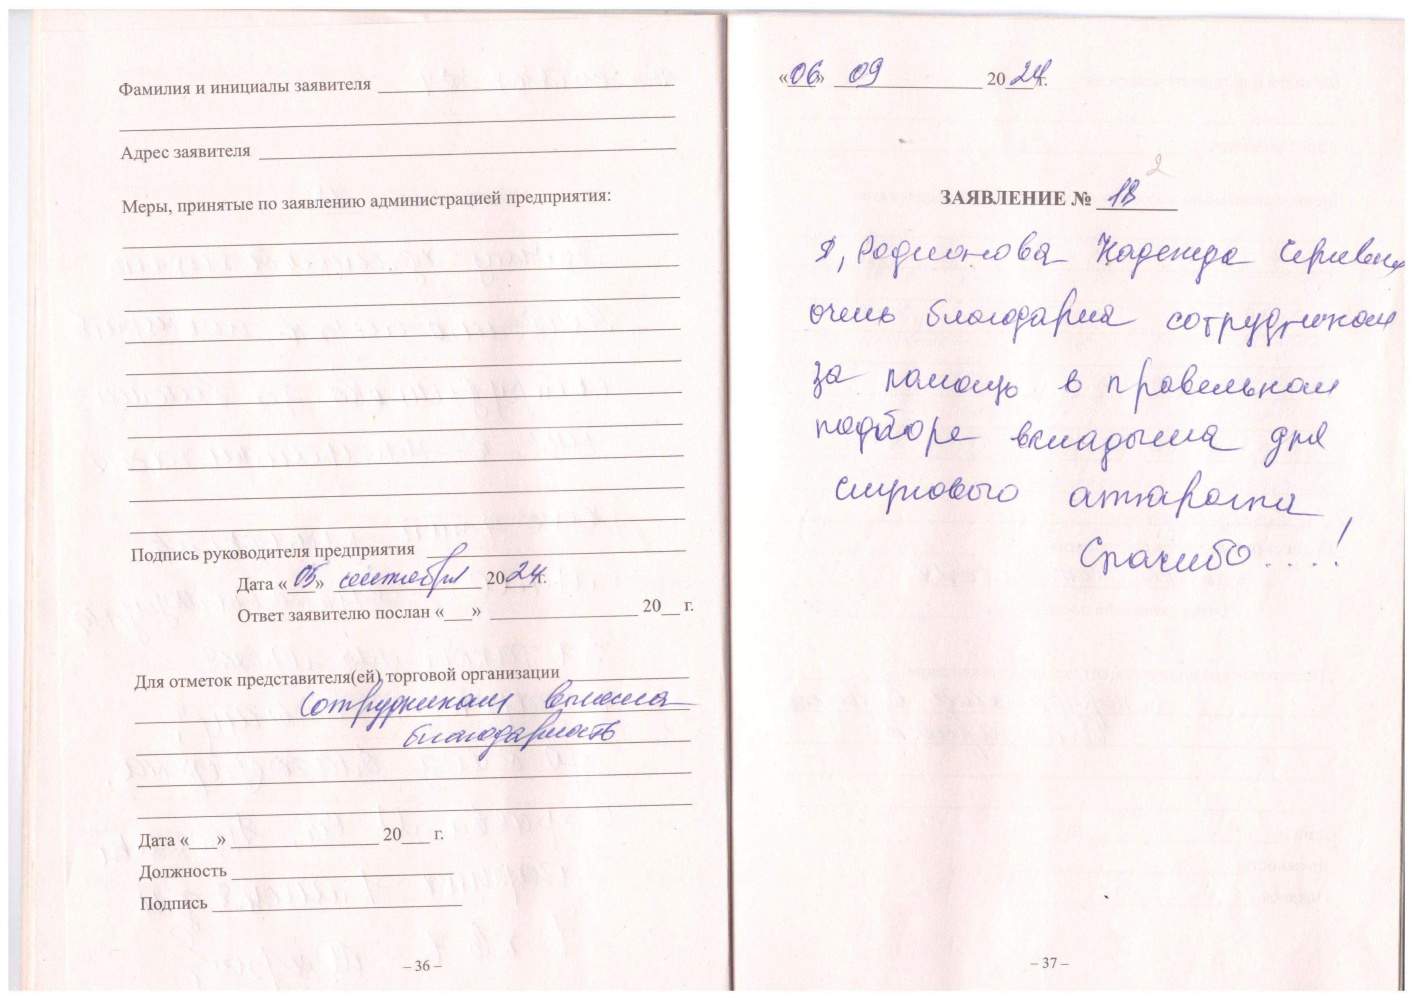 Фамилия и инициалы заявителя
Адрес заявителя
Меры, принятые по заявлению администрацией предприятия:
Подпись руководителя предприятия
Дата «05» сентября 2024 г.
Ответ заявителю послан «___» ________ 20__ г.
Для отметок представителя(ей) торговой организации
сотрудникам вынесена
благодарность
Дата «___» ________ 20___ г.
Должность
Подпись
– 36 –
«06» 09 2024 г.
2
ЗАЯВЛЕНИЕ № 18
Я, Родионова Надежда
очень благодарна сотрудникам
за помощь в правельном
подборе вкладыша для
слухового аппарата
Спасибо....!
– 37 –